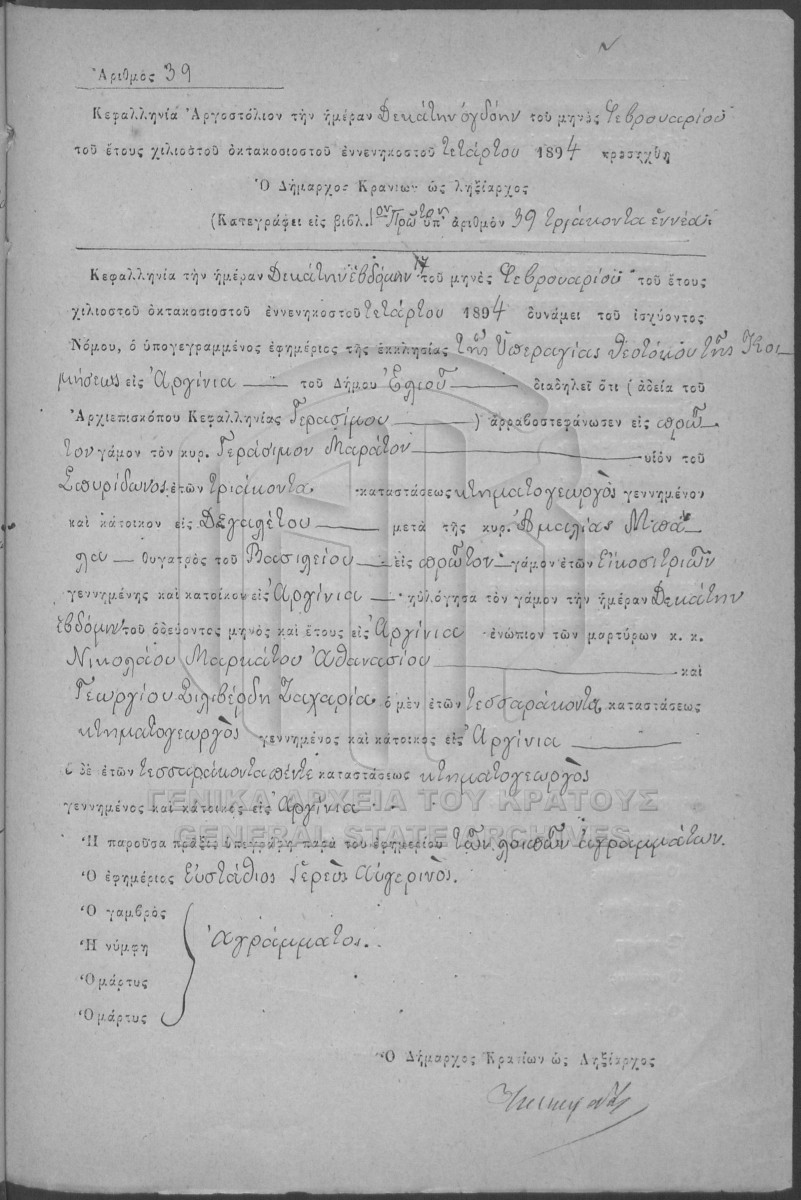 Ἀριθμὸς 39
Κεφαλληνία Ἀργοστόλιον τὴν ἡμέραν Δεκάτην ὀγδόην τοῦ μηνὸς Φεβρουαρίου
τοῦ ἔτους χιλιοστοῦ ὀκτακοσιοστοῦ ἐννενηκοστοῦ τετάρτου 1894 προσήχθη
Ὁ Δήμαρχος Κρανίων ὡς ληξίαρχος
(Κατεγράφει εἰς βιβλ. 1ον Πρῶτον ὑπ' ἀριθμὸν 39 τριάκοντα ἐννέα.
Κεφαλληνία τὴν ἡμέραν Δεκάτην ἑβδόμην 17 τοῦ μηνὸς Φεβρουαρίου τοῦ ἔτους
χιλιοστοῦ ὀκτακοσιοστοῦ ἐννενηκοστοῦ τετάρτου 1894 δυνάμει τοῦ ἰσχύοντος
Νόμου, ὁ ὑπογεγραμμένος ἐφημέριος τῆς ἐκκλησίας τῆς Ὑπεραγίας Θεοτόκου τῆς Κοι
μήσεως εἰς Ἀργίνια τοῦ Δήμου Ἐλιοῦ διαδηλεῖ ὅτι (ἀδεία τοῦ
Ἀρχιεπισκόπου Κεφαλληνίας Γερασίμου ) ἀρραβοστεφάνωσεν εἰς πρῶ
τον γάμον τὸν κυρ. Γεράσιμον Μαράτον υἱὸν τοῦ
Σπυρίδωνος ἐτῶν τριάκοντα καταστάσεως κτηματογεωργὸς γεννημένον
καὶ κάτοικον εἰς μετὰ τῆς κυρ. Ἀμαλίας Μπά
λα θυγατρὸς τοῦ Βασιλείου εἰς πρῶτον γάμον ἐτῶν εἰκοσιτριῶν
γεννημένης καὶ κατοίκου εἰς Ἀργίνια ηὐλόγησα τὸν γάμον τὴν ἡμέραν Δεκάτην
ἑβδόμην τοῦ ὁδεύοντος μηνὸς καὶ ἔτους εἰς Ἀργίνια ἐνώπιον τῶν μαρτύρων κ. κ.
Νικολάου Μαρκάτου Ἀθανασίου καὶ
Γεωργίου Σιλιβέρδη Ζαχαρία ὁ μὲν ἐτῶν τεσσαράκοντα καταστάσεως
κτηματογεωργὸς γεννημένος καὶ κάτοικος εἰς Ἀργίνια
ὁ δὲ ἐτῶν τεσσαράκοντα πέντε καταστάσεως κτηματογεωργὸς
γεννημένος καὶ κάτοικος εἰς Ἀργίνια
ΓΕΝΙΚΑ ΑΡΧΕΙΑ ΤΟΥ ΚΡΑΤΟΥΣ
GENERAL STATE ARCHIVES
Ἡ παροῦσα πρᾶξις ὑπεγράφη παρὰ τοῦ ἐφημερίου τῶν λοιπῶν ἀγραμμάτων.
Ὁ ἐφημέριος Εὐστάθιος Ἱερεὺς Αὐγερινὸς.
Ὁ γαμβρὸς
Ἡ νύμφη
Ἀγράμματοι.
Ὁ μάρτυς
Ὁ μάρτυς
Ὁ Δήμαρχος Κρανίων ὡς Ληξίαρχος